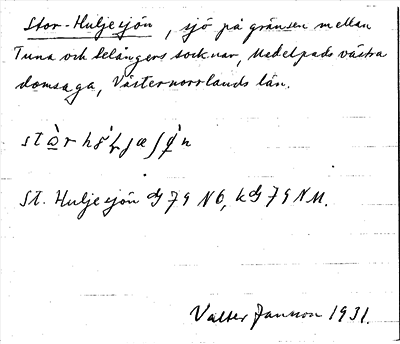 Stor-Huljesjön, sjö på gränsen mellan
Tuna och Selångers socknar, Medelpads västra
domsaga, Västernorrlands län.
St. Huljesjön
Valter Jansson 1931.